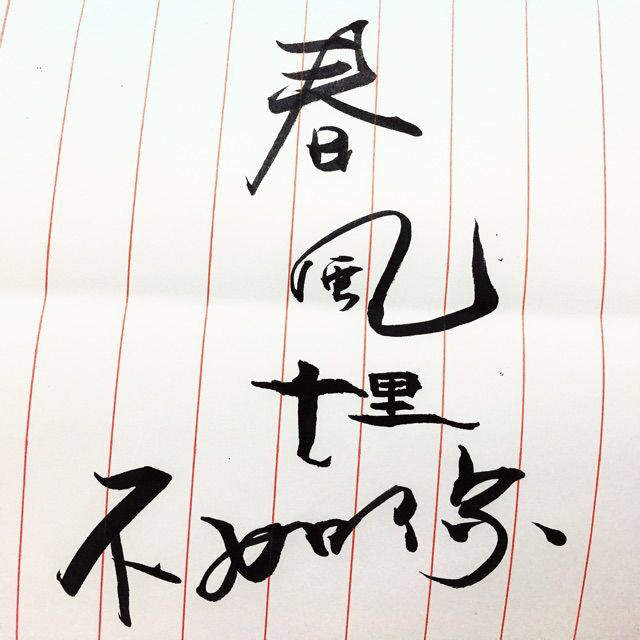 春
風
十里
不如你